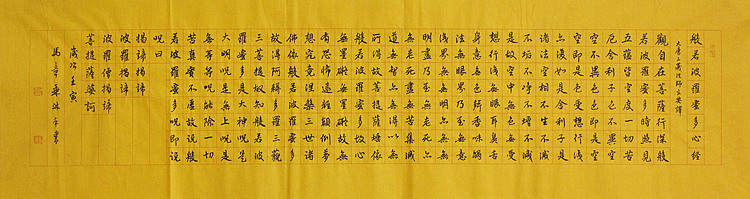 般若波羅蜜多心經
大唐三藏法師玄奘譯
觀自在菩薩行深般
若波羅蜜多時照見
五蘊皆空度一切苦
厄舍利子色不異空
空不異色色即是空
空即是色受想行識
亦復如是舍利子是
諸法空相不生不滅
不垢不淨不增不減
是故空中無色無受
想行識無眼耳鼻舌
身意無色聲香味觸
法無眼界乃至無意
識界無無明亦無無
明盡乃至無老死亦
無老死盡無苦集滅
道無智亦無得以無
所得故菩提薩埵依
般若波羅蜜多故心
無罣礙無罣礙故無
有恐怖遠離顛倒夢
想究竟涅槃三世諸
佛依般若波羅蜜多
故得阿耨多羅三藐
三菩提故知般若波
羅蜜多是大神呪是
大明呪是無上呪是
無等等呪能除一切
苦真實不虛故說般
若波羅蜜多呪即說
呪曰
揭諦揭諦
波羅揭諦
波羅僧揭諦
菩提薩婆訶
歲次壬寅